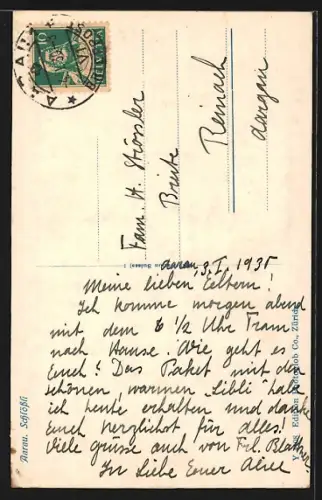 AARAU
10
HELVETIA
Fam. H. Strössler
Breite
Reinach
Aargau
Aarau, 3. I. 1935
Meine lieben Eeltern!
Ich komme morgen abend
mit dem 6 1/2 Uhr Tram
nach Hause. Wie geht es
Euch? Das Paket mit den
schönen, warmen "Libli" habe
ich heute erhalten und danke
Euch herzlichst für alles!
Viele Grüsse auch von Frl.
In Liebe Euer
Aarau. Schlößli
Edition Co., Zürich